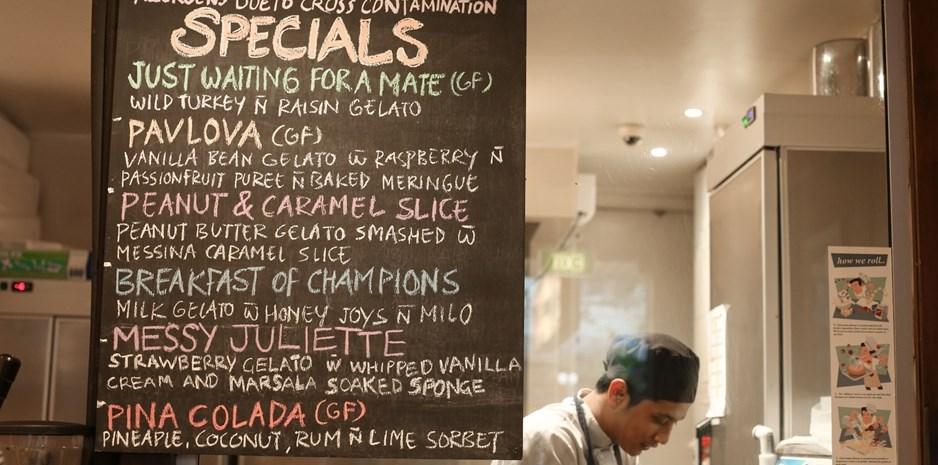 ALLERGENS DUE TO CROSS CONTAMINATION
SPECIALS
JUST WAITING FOR A MATE (GF)
WILD TURKEY N̄ RAISIN GELATO
PAVLOVA (GF)
VANILLA BEAN GELATO W̄ RASPBERRY N̄
PASSIONFRUIT PUREE N̄ BAKED MERINGUE
PEANUT & CARAMEL SLICE
PEANUT BUTTER GELATO SMASHED W̄
MESSINA CARAMEL SLICE
BREAKFAST OF CHAMPIONS
MILK GELATO W̄ HONEY JOYS N̄ MILO
MESSY JULIETTE
STRAWBERRY GELATO W̄ WHIPPED VANILLA
CREAM AND MARSALA SOAKED SPONGE
PINA COLADA (GF)
PINEAPLE, COCONUT, RUM N̄ LIME SORBET
how we roll..